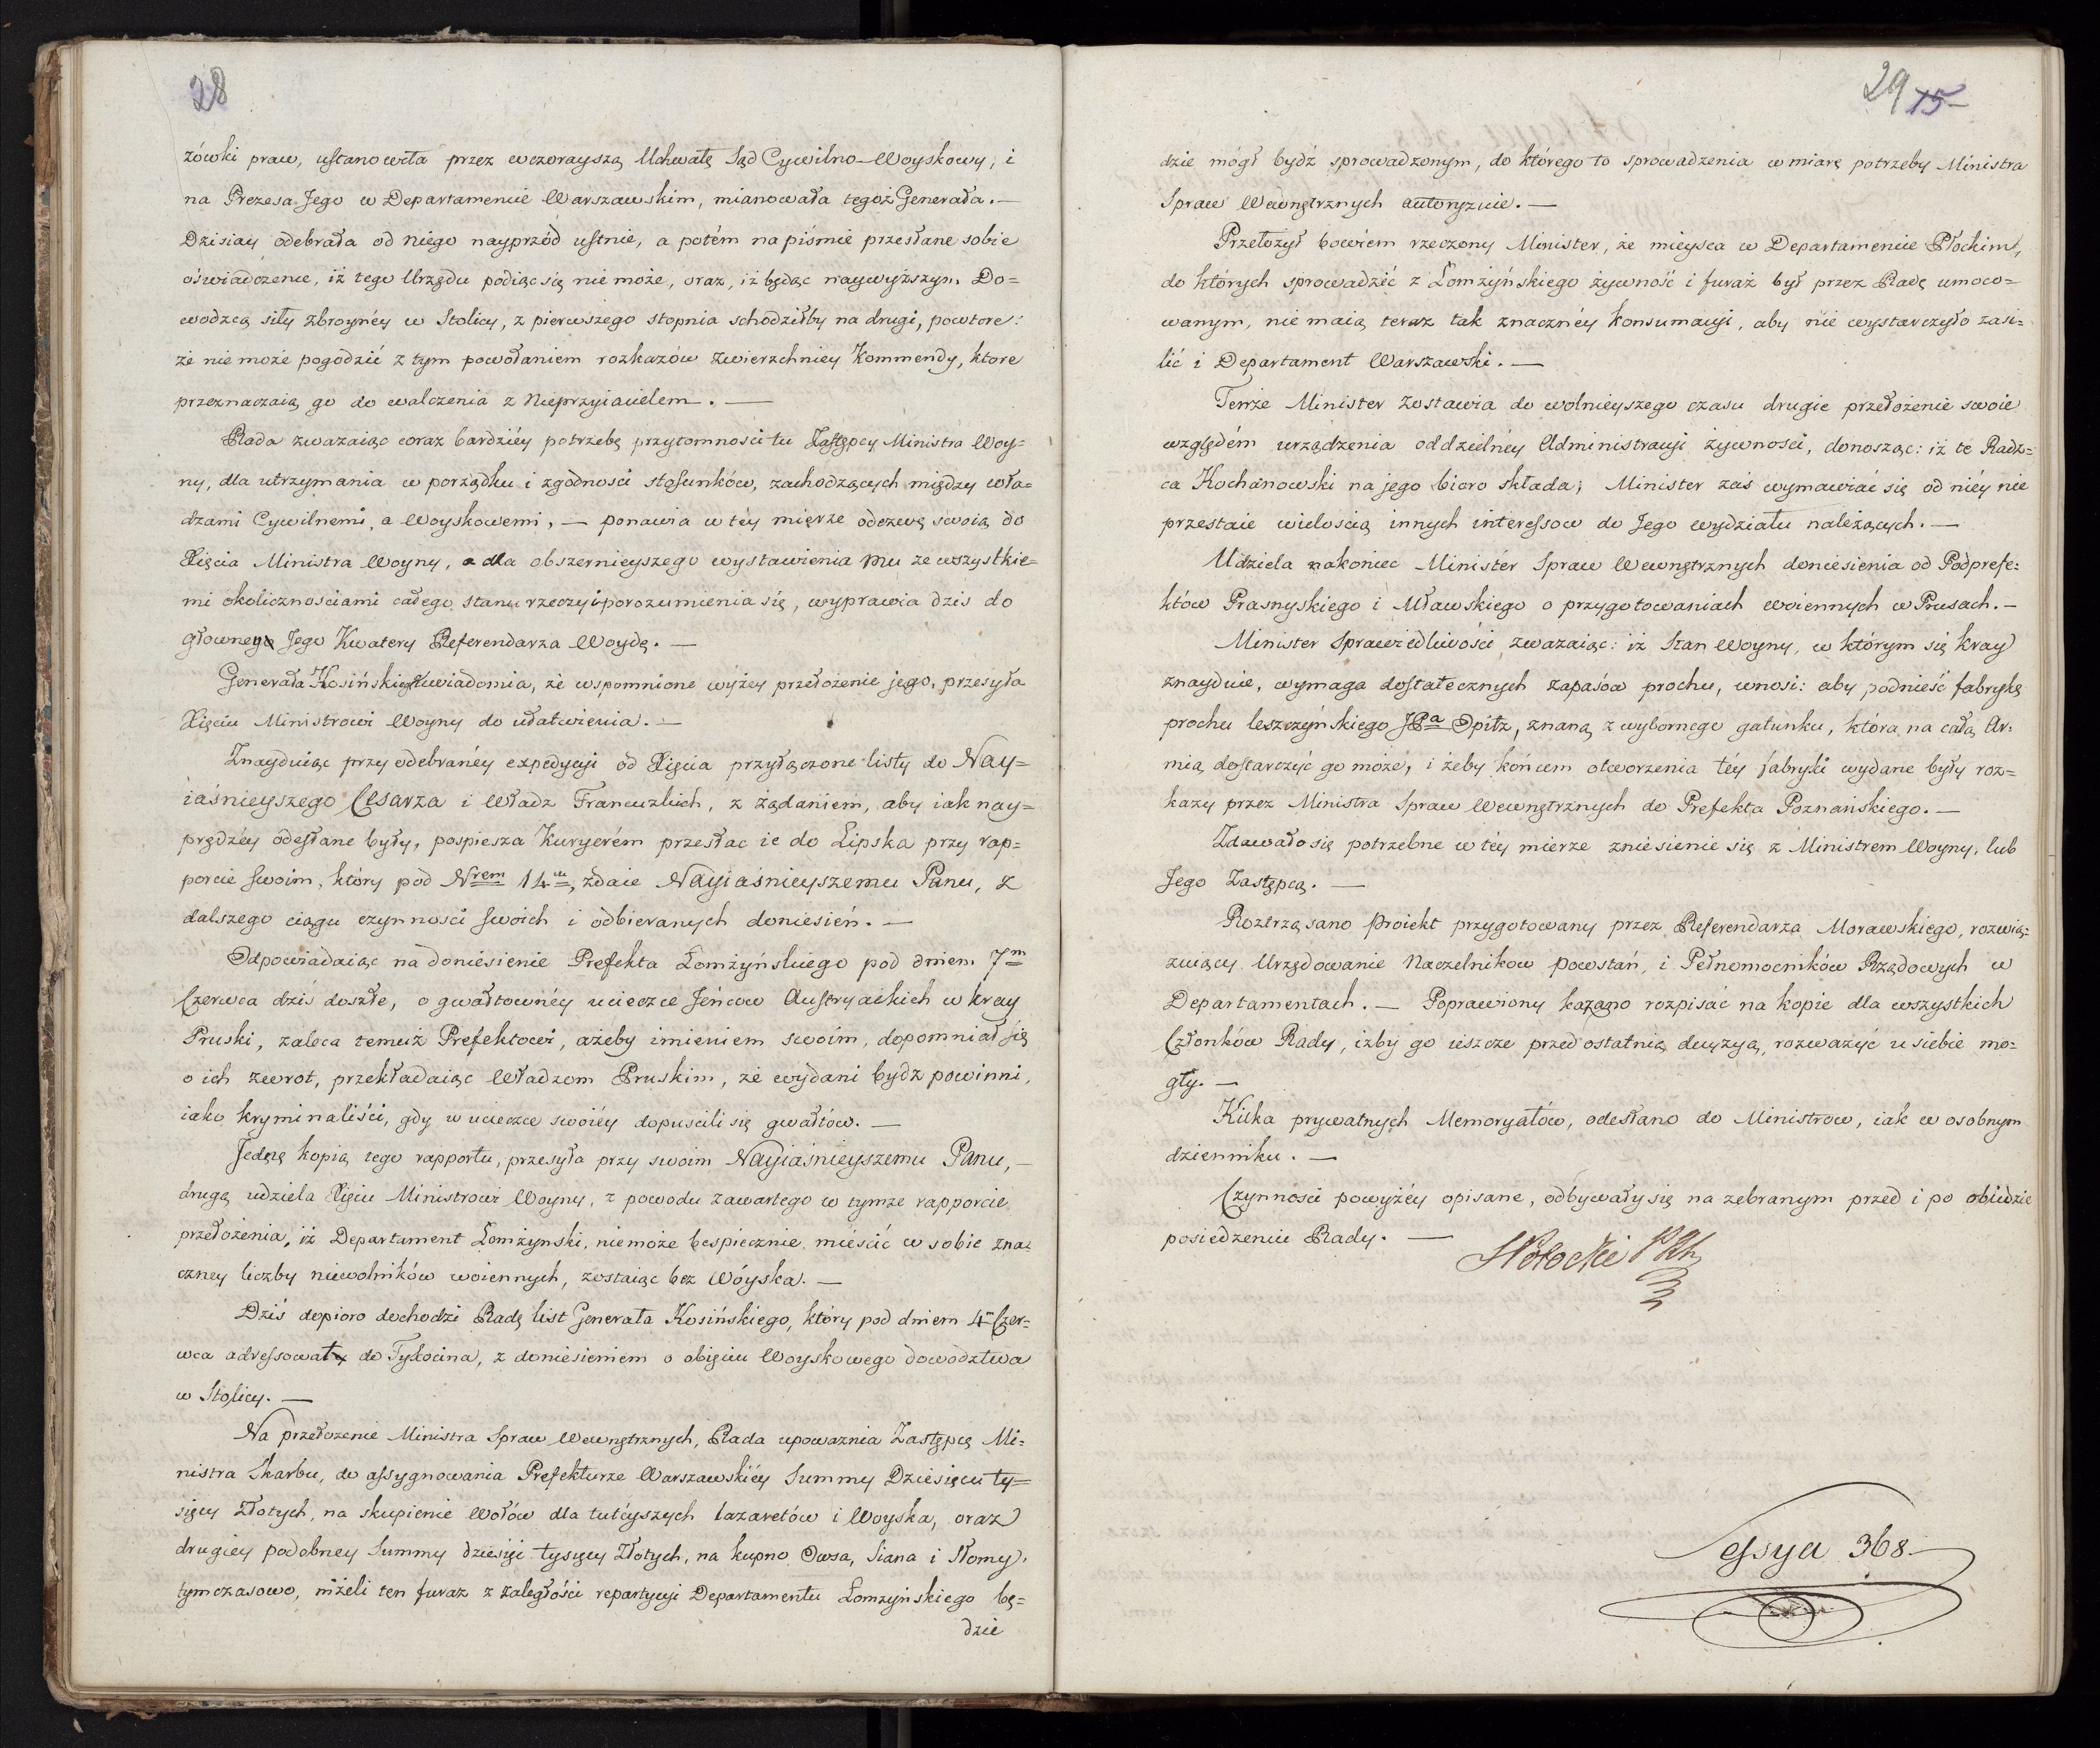 28
zówki praw, ustanowiła przez wczorayszą Uchwałę Sąd Cywilno-Woyskowy, i
na Prezesa Jego w Departamencie Warszawskim, mianowała tegoż Generała. —
Dzisiay odebrała od niego nayprzód ustnie, a potém na piśmie przesłane sobie
oświadczenie, iż tego Urzędu podiąć się nie może, oraz, iż będąc naywyższym Do=
wodzcą siły zbroynéy w Stolicy, z pierwszego stopnia schodziłby na drugi, powtore:
że nie może pogodzić z tym powołaniem rozkazów zwierzchniey Kommendy, ktore
przeznaczaią go do walczenia z Nieprzyiacielem. —
Rada zważaiąc coraz bardziéy potrzebę przytomności tu Zastępcy Ministra Woy=
ny, dla utrzymania w porządku i zgodności stosunków, zachodzących między wła=
dzami Cywilnemi, a Woyskowemi, — ponawia w téy mierze odezwę swoią do
Xięcia Ministra Woyny, a dla obszernieyszego wystawienia mu ze wszystkie=
mi okolicznościami całego stanu rzeczy i porozumienia się, wyprawia dziś do
główney Jego Kwatery Referendarza Woydę. —
Generała Kosińskiego uwiadomia, że wspomnione wyżey przełożenie jego, przesyła
Xięciu Ministrowi Woyny do ułatwienia. —
Znayduiąc przy odebranéy expedycyi od Xięcia przyłączone listy do Nay=
iaśnieyszego Cesarza i Władz Francuzkich, z żądaniem, aby iak nay=
prędzéy odesłane były, pospiesza Kuryerém przesłac ie do Lipska przy rap=
porcie swoim, który pod Nrem 14m, zdaie Nayiaśnieyszemu Panu, z
dalszego ciągu czynnosci swoich i odbieranych doniesień. —
Odpowiadaiąc na doniesienie Prefekta Łomżyńskiego pod dniem 7m
Czerwca dziś doszłe, o gwałtownéy ucieczce Jeńcow Austryackich w kray
Pruski, zaleca temuż Prefektowi, ażeby imieniem swoim, dopomniał się
o ich zwrot, przekładaiąc Władzom Pruskim, że wydani bydz powinni,
iako kryminaliści, gdy w ucieczce swoiéy dopuscili się gwałtów. —
Jednę kopią tego rapportu, przesyła przy swoim Nayiaśnieyszemu Panu, —
drugą udziela Xięciu Ministrowi Woyny, z powodu zawartego w tymże rapporcie
przełożenia, iż Departament Łomżynski, niemoże bespiecznie mieścić w sobie zna=
czney liczby niewolników woiennych, zostaiąc bez Wóyska. —
Dziś dopioro dochodzi Radę list Generała Kosińskiego, który pod dniem 4m Czer=
wca adressował do Tykocina, z doniesieniem o obięciu Woyskowego dowodztwa
w Stolicy. —
Na przełożenie Ministra Spraw Wewnętrznych, Rada upoważnia Zastępcę Mi=
nistra Skarbu, do assygnowania Prefekturze Warszawskiéy Summy Dziesięciu ty=
sięcy Złotych, na skupienie Wołów dla tutéyszych lazaretów i Woyska, oraz
drugiéy podobney Summy dziesięć tysięcy Złotych, na kupno Owsa, Siana i Słomy,
tymczasowo, niżeli ten furaz z zaległości repartycyi Departamentu Łomżyńskiego bę=
dzie
29 15
dzie mógł bydź sprowadzonym, do którego to sprowadzenia w miarę potrzeby Ministra
Spraw Wewnętrznych autoryzuie. —
Przełożył bowiem rzeczony Minister, że mieysca w Departamencie Płockim,
do których sprowadzić z Łomżyńskiego żywność i furaż był przez Radę umoco=
wanym, nie maią teraz tak znacznéy konsumacyi, aby nie wystarczyło zasi=
lić i Departament Warszawski. —
Tenże Minister zostawia do wolnieyszego czasu drugie przełożenie swoie
względém urządzenia oddzielnéy Administracyi żywności, donosząc: iż te Radz=
ca Kochanowski na jego bióro składa; Minister zaś wymawiać się od niéy nie
przestaie wielością innych interessow do Jego wydziału należących. —
Udziela nakoniec Minister Spraw Wewnętrznych doniesienia od Podprefe=
któw Prasnyskiego i Mławskiego o przygotowaniach woiennych w Prusach. —
Minister Sprawiedliwości, zważaiąc: iż Stan Woyny, w którym się kray
znayduie, wymaga dostatecznych zapasów prochu, wnosi: aby podnieść fabrykę
prochu leszczyńskiego JPa Opitz, znaną z wybornego gatunku, która na całą Ar=
mią dostarczyć go może, i żeby końcem otworzenia téy fabryki wydane były roz=
kazy przez Ministra Spraw Wewnętrznych do Prefekta Poznańskiego. —
Zdawało się potrzebne w téy mierze zniesienie się z Ministrem Woyny, lub
Jego Zastępcą. —
Roztrząsano Proiekt przygotowany przez Referendarza Morawskiego, rozwią=
zuiący Urzędowanie Naczelnikow Powstań, i Pełnomocników Rządowych w
Departamentach. — Poprawiony kazano rozpisać na kopie dla wszystkich
Członków Rady, iżby go ieszcze przed ostatnią decyzyą, rozważyć u siebie mo=
gły. —
Kilka prywatnych Memoryałów, odesłano do Ministrow, iak w osobnym
dzienniku. —
Czynnosci powyżéy opisane, odbywały się na zebranym przed i po obiedzie
posiedzeniu Rady. —
SPotocki
Sessya 368